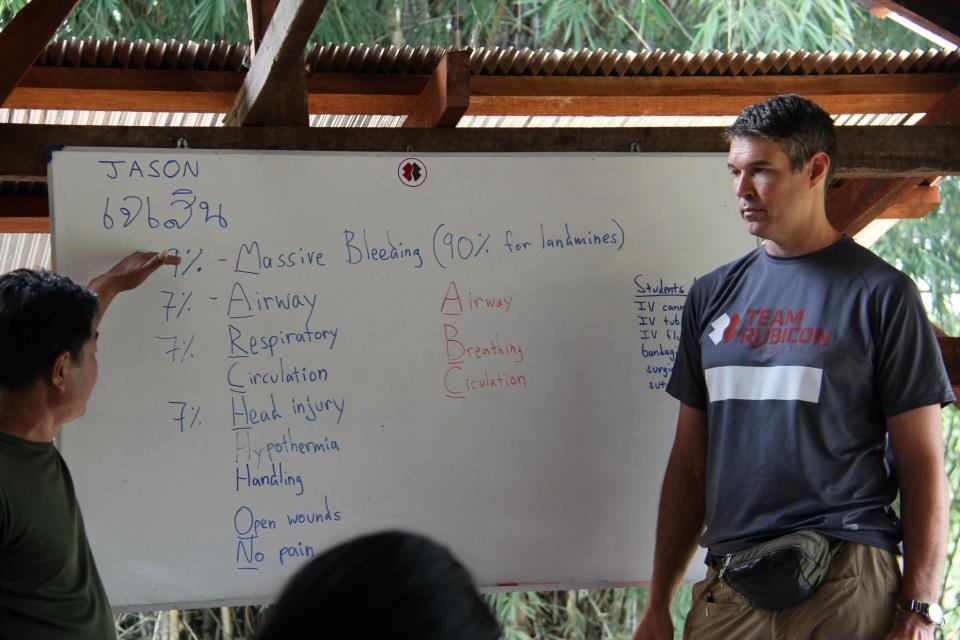 JASON
เจเสิน
9% - Massive Bleeding (90% for landmines)
7% - Airway
7% Respiratory
Circulation
7% Head injury
Hypothermia
Handling
Open wounds
No pain
Airway
Breathing
Ciculation
Students
IV cann
IV tub
IV flu
bandag
surgi
sut
TEAM
RUBICON